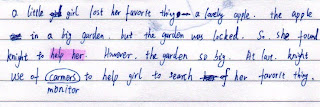 a little girl lost her favorite thing — a lovely apple. the apple
in a big garden. but the garden was locked. So, she found
knight to help her. However, the garden so big. At last, knight
use of carmers to help girl to search her favorite thing.
monitor